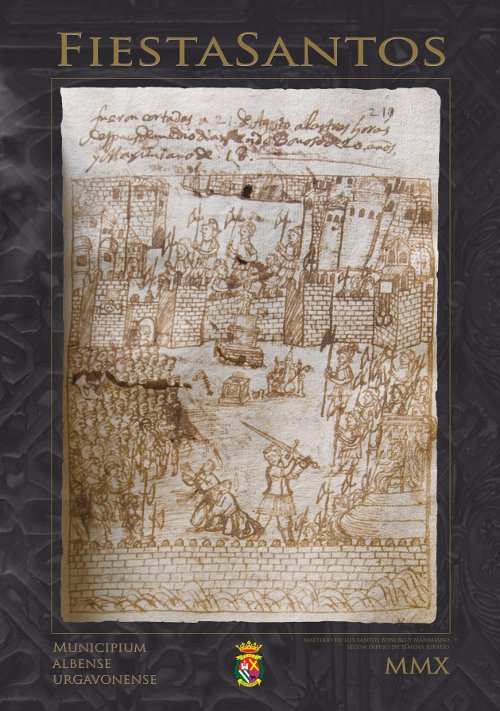 FIESTASANTOS
219
fueron cortadas a 21 de Agosto a las tres horas
despues de mediodia siendo Bonoso de 20 años
y Maximiano de 18.
MUNICIPIUM
ALBENSE
URGAVONENSE
MARTIRIO DE LOS SANTOS BONOSO Y MAXIMIANO
SEGÚN DIBUJO DE XIMENA JURADO
MMX